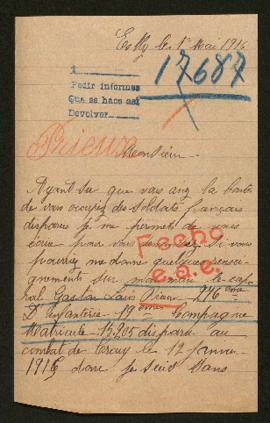 Esly le 1er Mai 1916
17687
A
Pedir informes
Que se hace así
Devolver
Prieur
Monsieur
Ayant su que vous avez la bonté
de vous occuper des soldats français
disparus je me permets de vous
écrire pour vous si vous
pourriez me donner quelques rensei-
gnements sur mon mari le capo-
ral Gaston Louis 276 ème
D'Infanterie 19 ème Compagnie
Matricule 13.205 disparu au
combat de Crouy le 12 janvier
1915 dont je suis sans
Fecho
e.a.e.